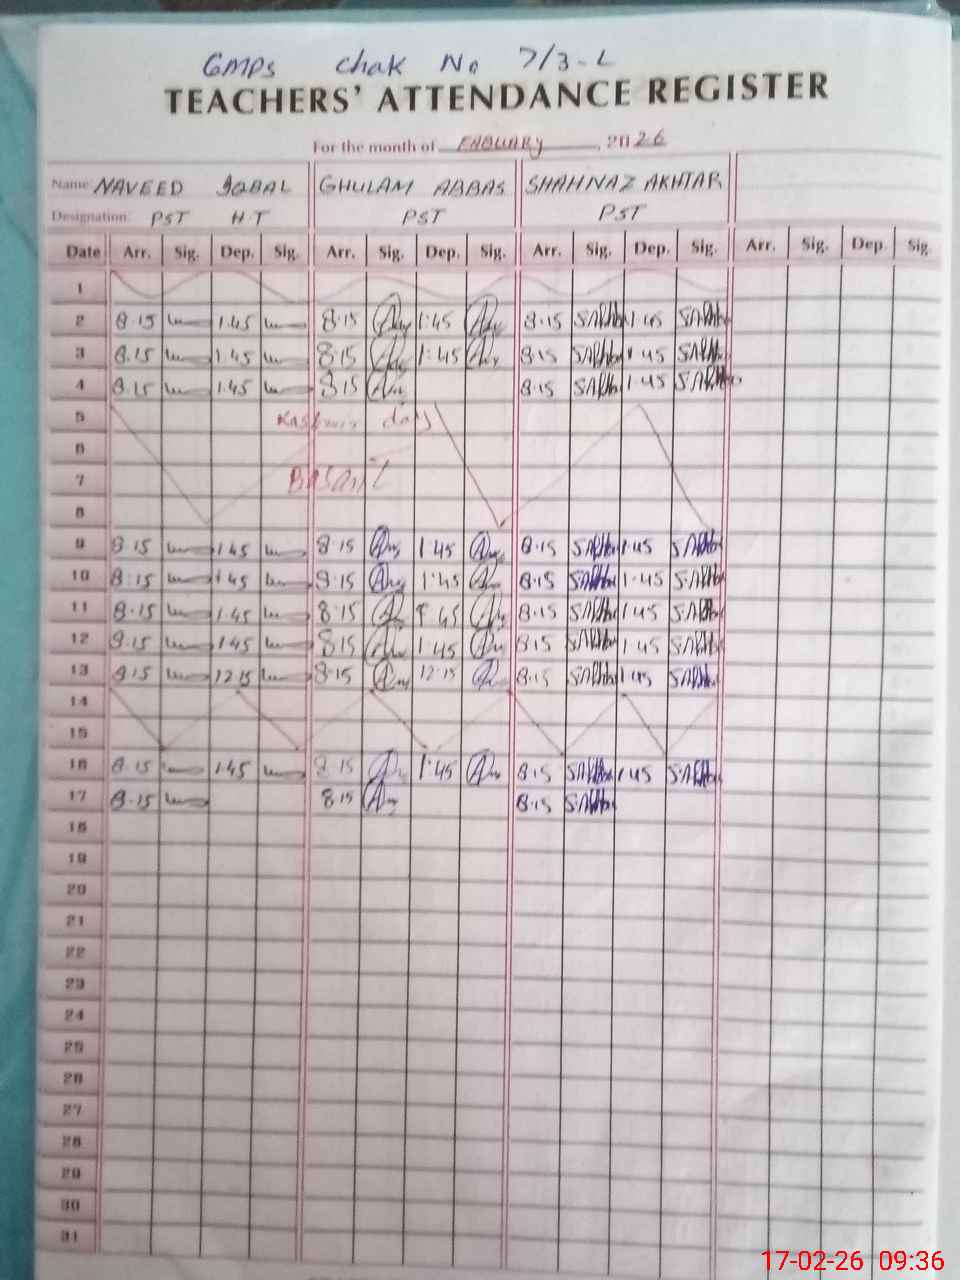 GMPS chak No 7/3-L
TEACHERS' ATTENDANCE REGISTER
For the month of FABUARY, 2026
Name: NAVEED IQBAL GHULAM ABBAS SHAHNAZ AKHTAR
Designation: PST H.T PST PST
Date Arr. Sig. Dep. Sig. Arr. Sig. Dep. Sig. Arr. Sig. Dep. Sig. Arr. Sig. Dep. Sig.
1
2 8.15 1.45 8.15 1:45 8.15 1.45
3 8.15 1.45 8.15 1:45 8.15 1.45
4 8.15 1.45 8.15 8.15 1.45
5 Kashmir day
6
7 BASANT
8
9 8.15 1.45 8.15 1:45 8.15 1.45
10 8:15 1.45 8.15 1:45 8.15 1.45
11 8.15 1.45 8.15 1.45 8.15 1.45
12 8.15 1.45 8.15 1.45 8.15 1.45
13 8.15 12.15 8.15 12.15 8.15 1.45
14
15
16 8.15 1.45 8.15 1:45 8.15 1.45
17 8.15 8.15 8.15
18
19
20
21
22
23
24
25
26
27
28
29
30
31
17-02-26 09:36